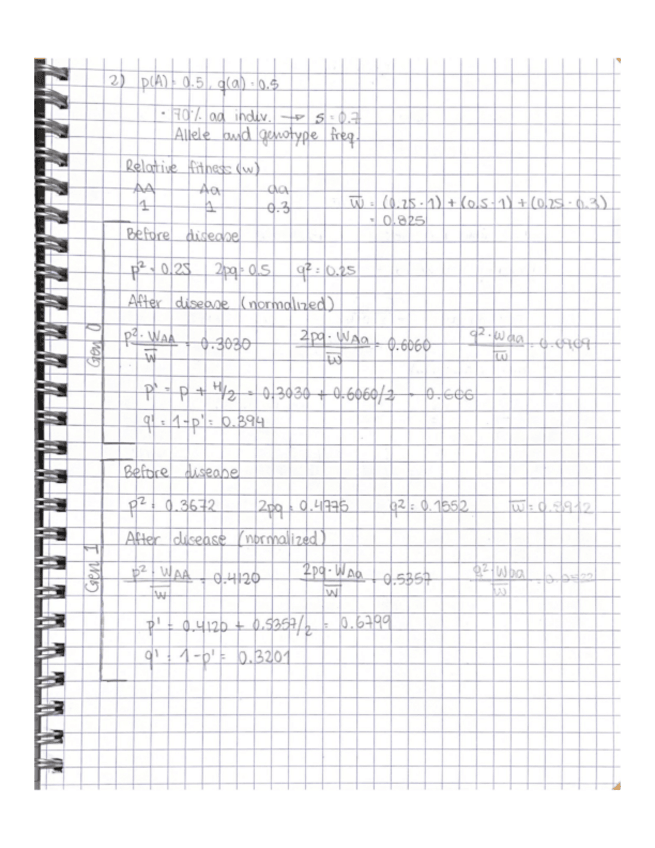 2) p(A) = 0.5, q(a) = 0.5
• 70% aa indiv. → s = 0.7
Allele and genotype freq.
Relative fitness (w)
AA Aa aa
1 1 0.3
w̅ = (0.25 · 1) + (0.5 · 1) + (0.25 · 0.3)
= 0.825
Gen 0
Before disease
p² = 0.25 2pq = 0.5 q² = 0.25
After disease (normalized)
p² · WAA / w̅ = 0.3030 2pq · WAa / w̅ = 0.6060 q² · Waa / w̅ = 0.0909
p' = p + H/2 = 0.3030 + 0.6060/2 = 0.606
q' = 1 - p' = 0.394
Gen 1
Before disease
p² = 0.3672 2pq = 0.4775 q² = 0.1552 w̅ = 0.8912
After disease (normalized)
p² · WAA / w̅ = 0.4120 2pq · WAa / w̅ = 0.5357 q² · Waa / w̅ = 0.0522
p' = 0.4120 + 0.5357/2 = 0.6799
q' = 1 - p' = 0.3201